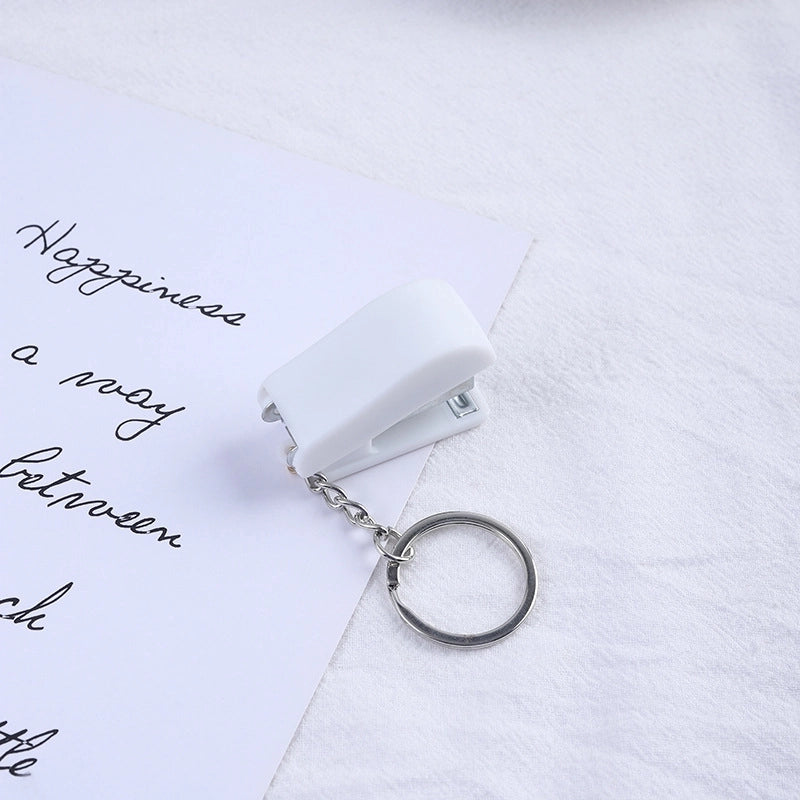 Happiness
a way
between
ck
ttle